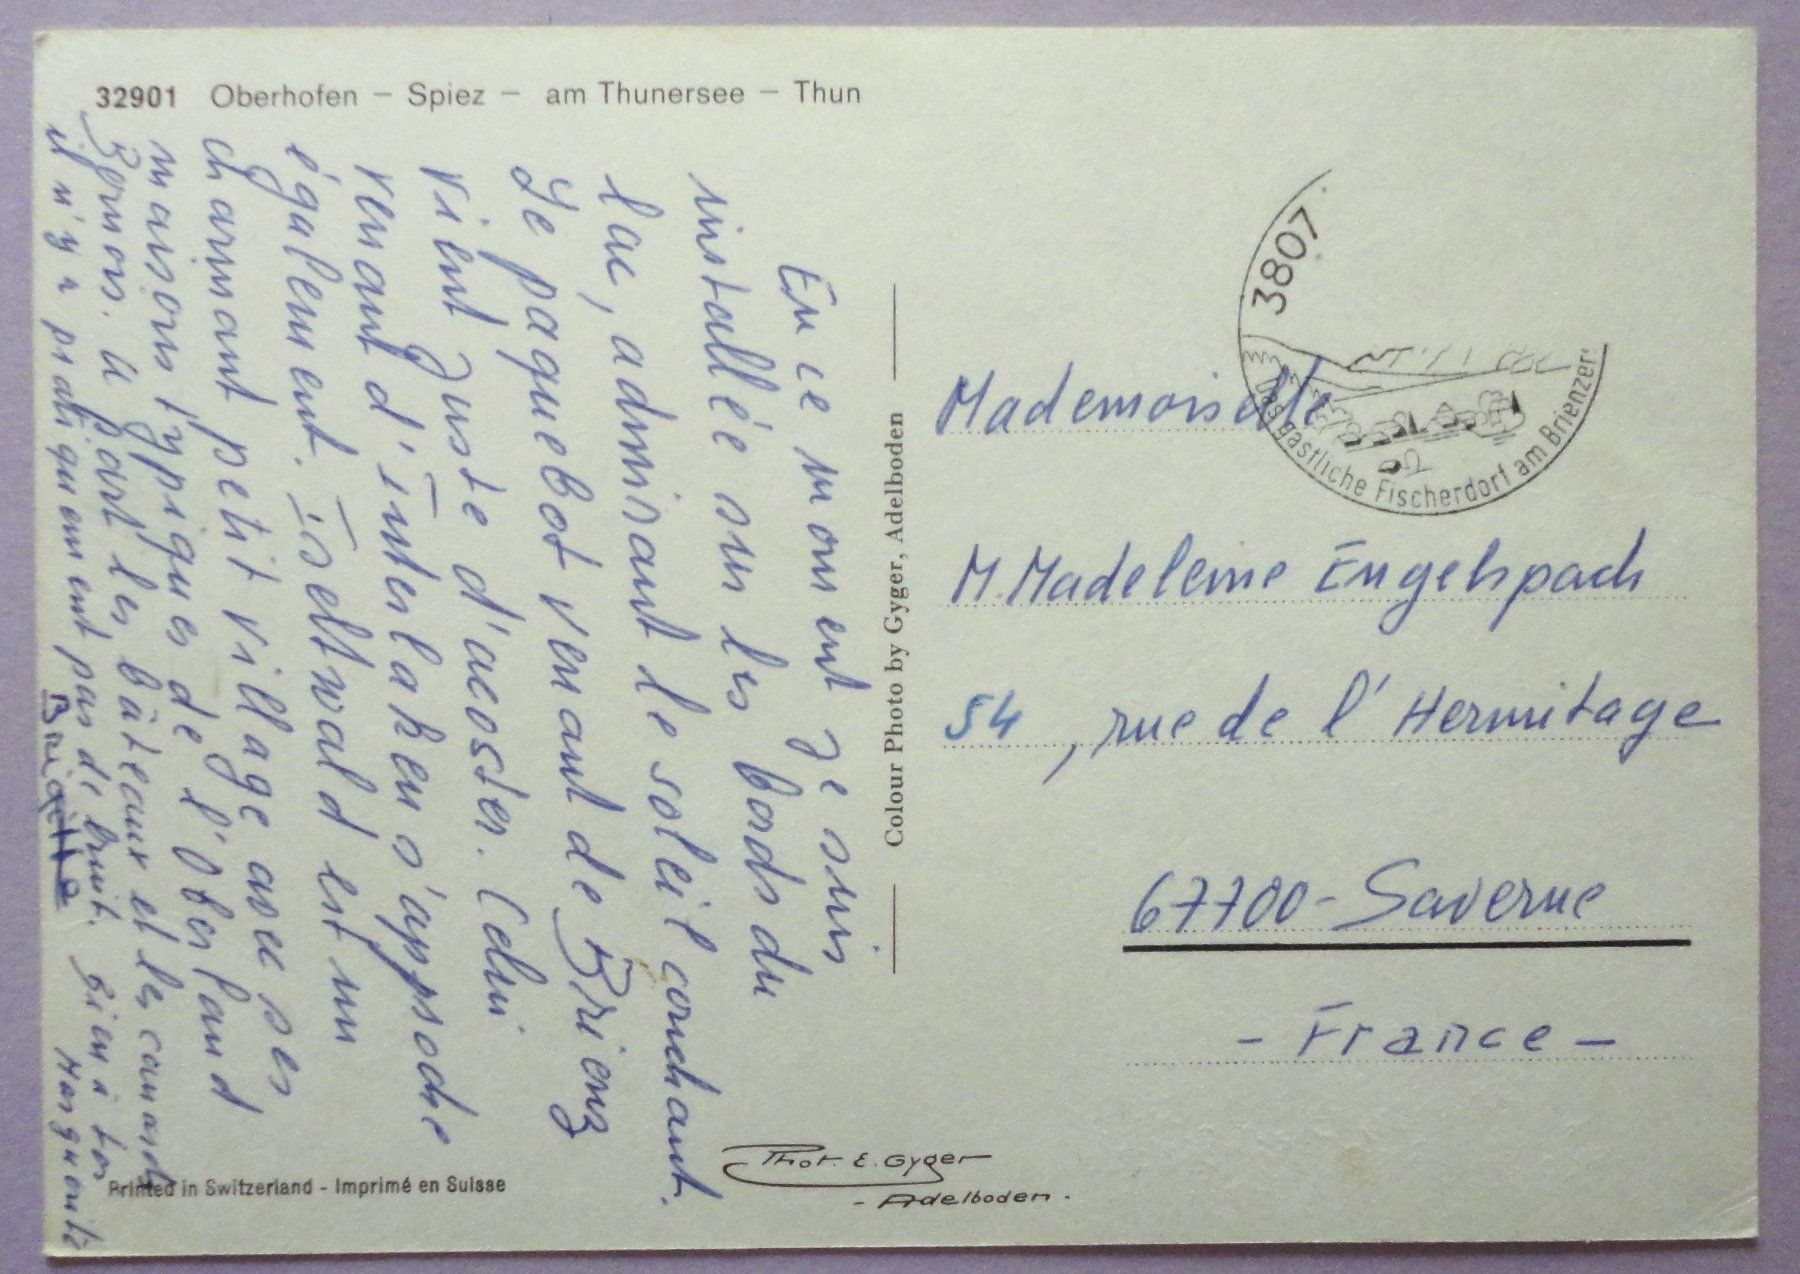 32901 Oberhofen – Spiez – am Thunersee – Thun
En ce moment je suis
installée sur les bords du
lac, admirant le soleil couchant.
Le paquebot venant de Brienz
vient juste d'acoster. Celui
venant d'Interlaken s'approche
également. Iseltwald est un
charmant petit village avec ses
maisons typiques de l'Oberland
Bernois. à part les bâteaux et les canards
il n'y a pratiquement pas de bruit. Bien à toi
Marguerite
Brigitte
Colour Photo by Gyger, Adelboden
3807
Das gastliche Fischerdorf am Brienzer
Mademoiselle
M. Madeleine Engelspach
54, rue de l'Hermitage
67700 - Saverne
- France -
Printed in Switzerland - Imprimé en Suisse
Phot. E. Gyger
- Adelboden.